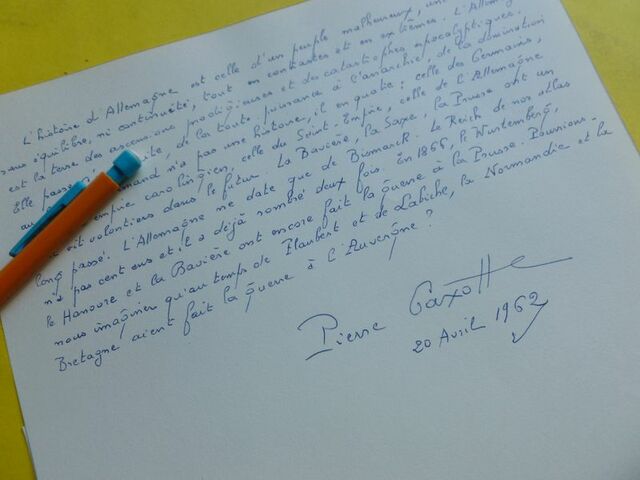 L'histoire d'Allemagne est celle d'un peuple malheureux, un
sans équilibre, ni continuité, tout en contrastes et en extrêmes. L'Allemag
est la terre des ascensions prodigieuses et des catastrophes apocalyptiques.
Elle passe, de la toute-puissance à l'anarchie, de la domination
au n'a pas une histoire, il en a quatre : celle des Germains,
empire carolingien, celle du Saint-Empire, celle de l'Allemagne
volontiers dans le futur. La Bavière, la Saxe, la Prusse ont un
long passé. L'Allemagne ne date que de Bismarck. Le Reich de nos atlas
n'a pas cent ans et il a déjà sombré deux fois. En 1866, le Wurtemberg,
le Hanovre et la Bavière ont encore fait la guerre à la Prusse. Pouvions-
nous imaginer qu'au temps de Flaubert et de Labiche, la Normandie et la
Bretagne aient fait la guerre à l'Auvergne ?
Pierre Gaxotte
20 Avril 1962